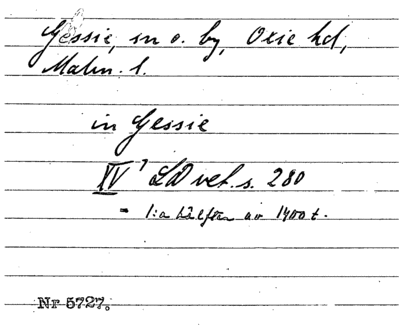 Gessie, sn o. by, Oxie hd,
Malm. l.
in Gessie
XV ? LD vet. s. 280
= 1:a hälften av 1400 t.
Nr 5727.